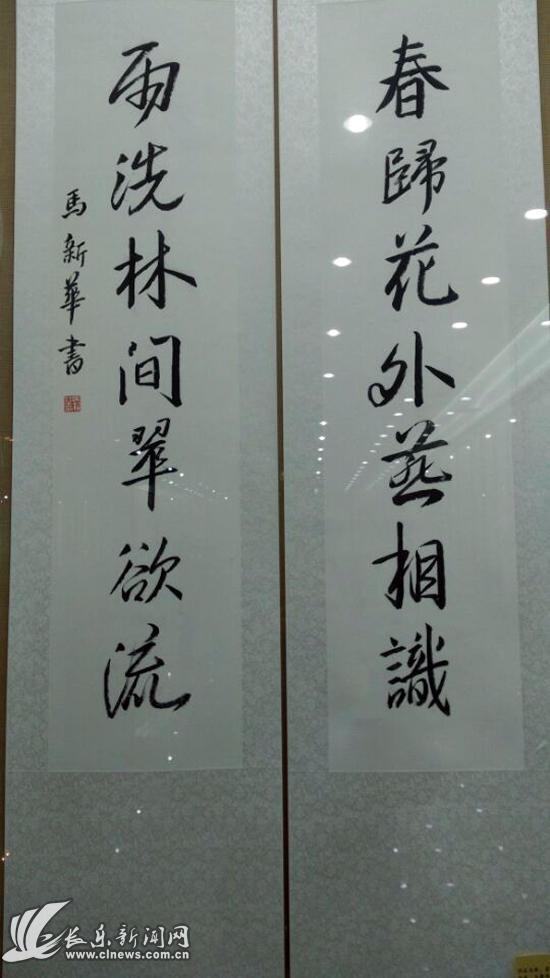 春歸花外燕相識
雨洗林间翠欲流
馬新華書
长乐新闻网
www.clnews.com.cn